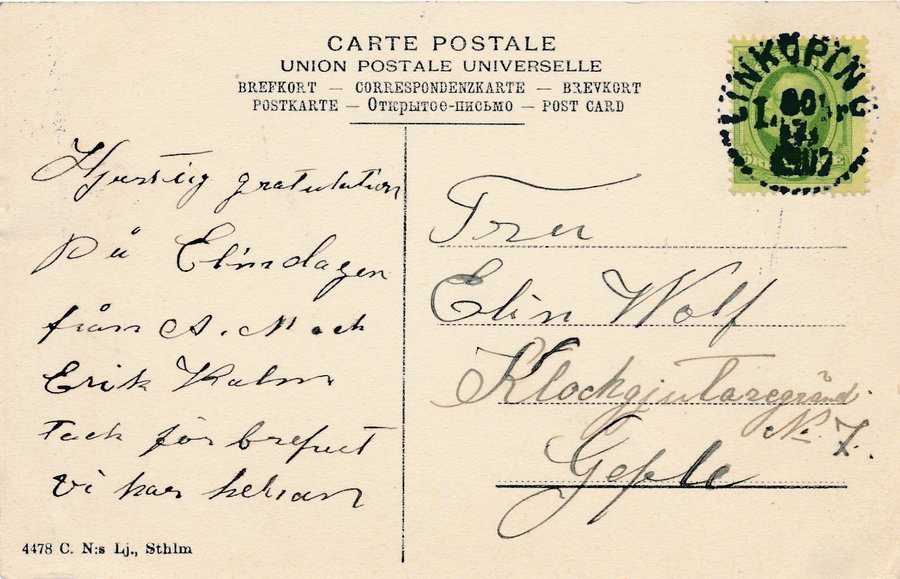 CARTE POSTALE
UNION POSTALE UNIVERSELLE
BREFKORT — CORRESPONDENZKARTE — BREVKORT
POSTKARTE — Открытое-письмо — POST CARD
LINKÖPING
Hjertlig gratulation
på Elindagen
från A. M och
Erik Kalm
Tack för brefvet
vi har hehan
Fru
Elin Wolf
Klockgjutaregränd.
No. 7.
Gefle
4478 C. N:s Lj., Sthlm